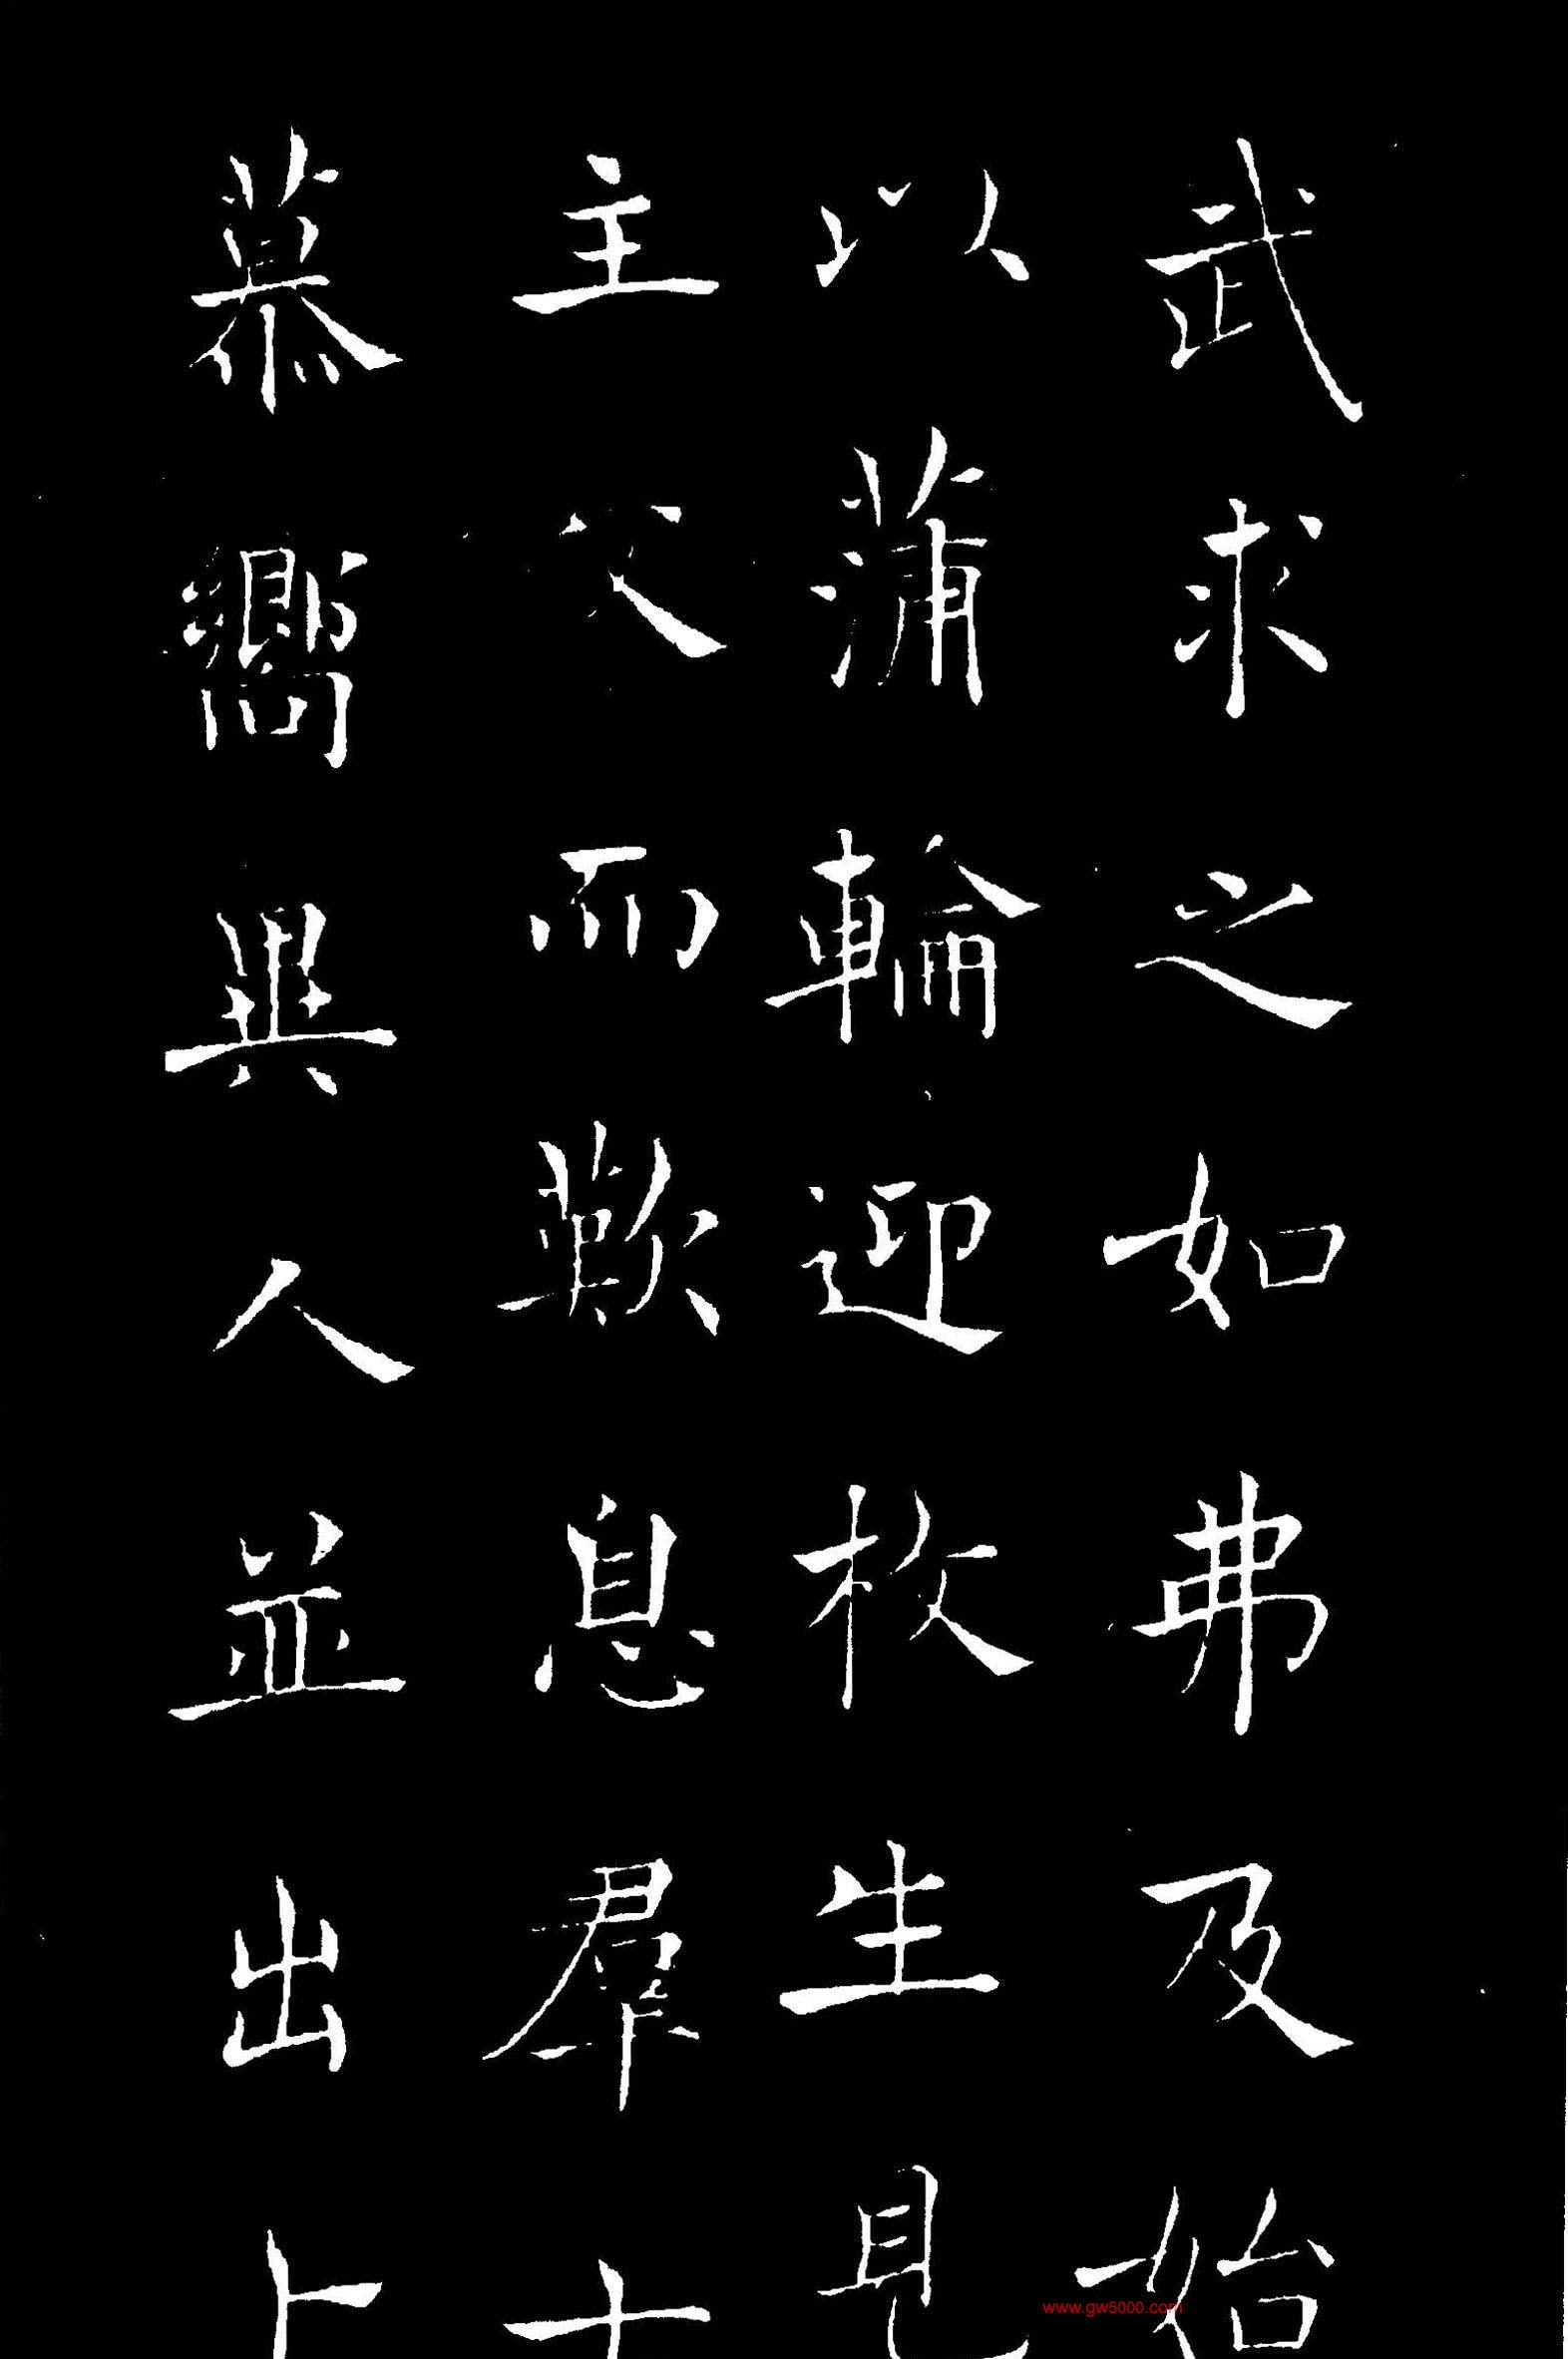 武求之如弗及始
以蒲輪迎枚生見
主父而歎息羣士
慕嚮異人並出卜
www.gw5000.com